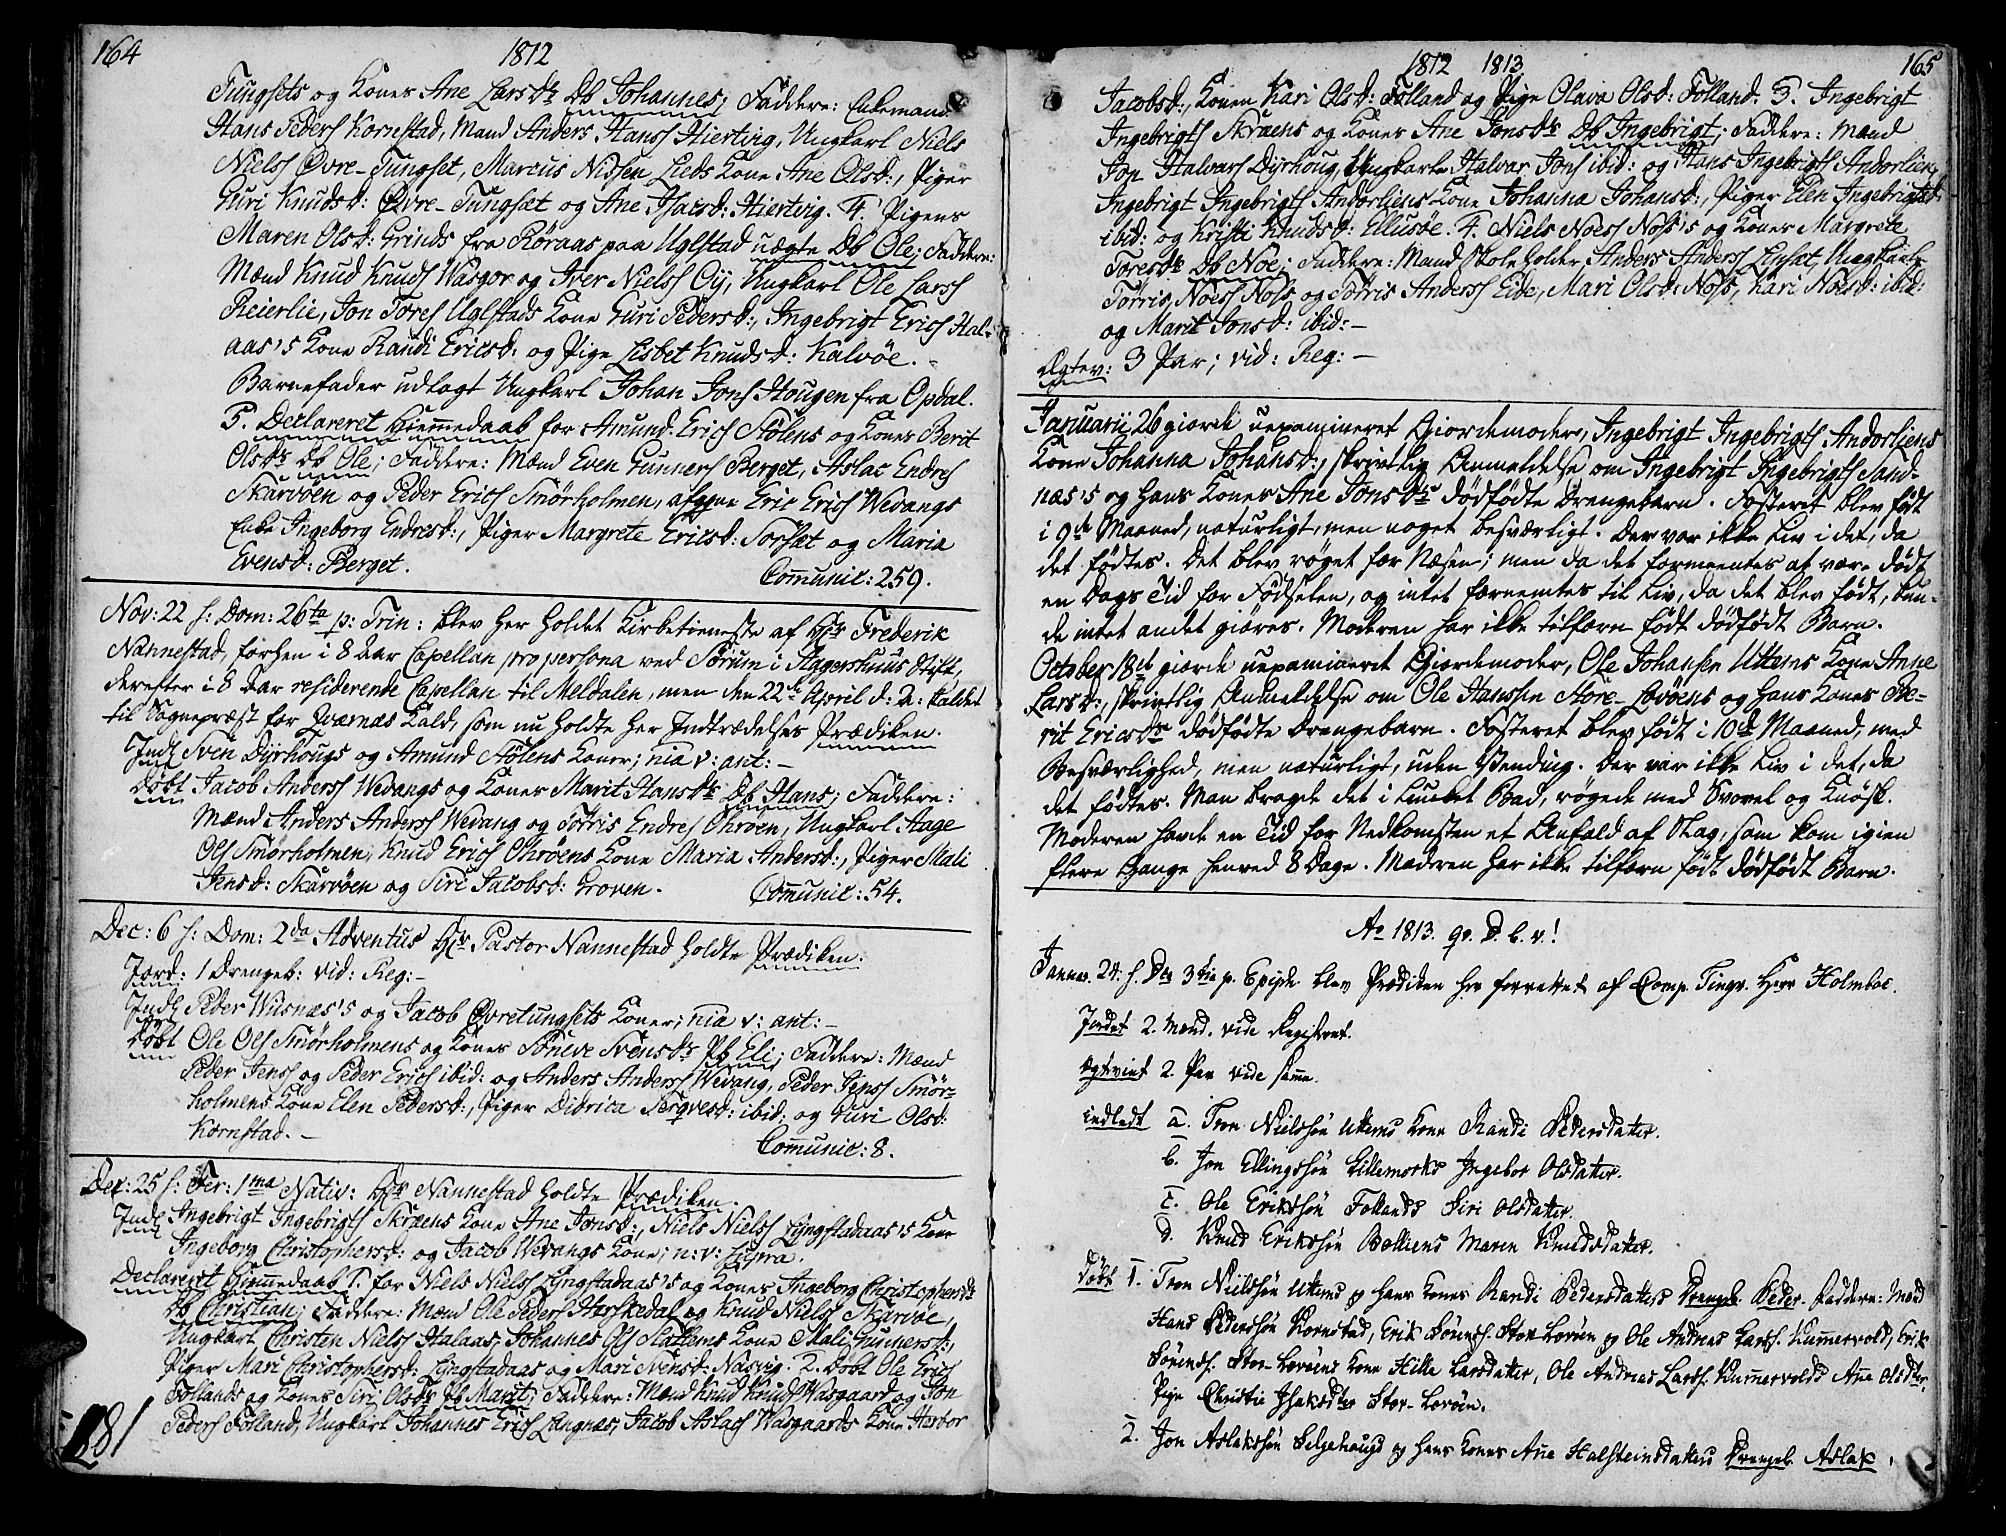 164
1812
Tungsets og Kones Ane Larsdr. Db Johannes; Faddere: Enkemand
Hans Peders Kornstad, Mand Anders Hanss Hiertvig, Ungkarl Niels
Nielss Øvre-Tungset, Marcus Nissen Leeds Kone Ane Olsd:, Piger
Guri Knudsd: Øvre-Tungsæt og Ane Isacsd: Hiertvig. 4. Pigens
Maren Olsd: Grinds fra Røraas paa Uglstad uægte Db Ole; Faddere:
Mænd Knud Knuds Wasgor og Iver Nielss Oÿ, Ungkarl Ole Larss
Reierlie, Jon Tores Uglstads Kone Guri Pedersd:, Ingebrigt Erics Hal-
aas's Kone Randi Ericsd: og Pige Lisbet Knudsd: Kalvöe.
Barnefader udlagt Ungkarl Johan Jons Hougen fra Opdal.
5. Declareret Hiemmedaab for Amund Erics Stölens og Kones Berit
Olsdr Db Ole; Faddere: Mænd Even Gunners Berget, Aslac Endres
Skarvöen og Peder Erics Smörholmen, afggne Eric Erics Wevangs
Enke Ingeborg Endresd:, Piger Margrete Ericsd: Torset og Maria
Evensd: Berget.
Com̄unic: 259.
Nov: 22 s: Dom: 26ta p: Trin: blev her holdet Kirketieneste af Hr Frederik
Nannestad, forhen i 8 Aar Capellan pro persona ved Sörum i Aggershuus Stift,
derefter i 8 Aar residerende Capellan til Meldalen, men den 22de April d: A: kaldet
til Sognepræst for Qværnæs Kald, som nu holdte her Indtrædelses Prædiken.
Indl Sven Dÿrhougs og Amund Stölens Koner; nia v: ant: –
Döbt Jacob Anderss Wevangs og Kones Marit Hansdr Db Hans; Faddere:
Mænd Anders Anderss Wevang og Törris Endres Ohröen, Ungkarl Aage
Ols Smörholmen, Knud Erics Ohröens Kone Maria Andersd:, Piger Mali
Jensd: Skarvöen og Siri Jacobsd: Groven.
Com̄unic: 54.
Dec: 6 s: Dom: 2da Adventus Hr Pastor Nannestad holdte Prædiken:
Jord: 1 Drengeb: vid: Reg: –
Indl Peder Wiisnæs's og Jacob Øvretungsets Koner; nia v: ant: –
Döbt Ole Ols Smörholmens og Kones Sönneve Svensdr Pb Eli; Faddere: Mænd
Peder Jenss og Peder Erics ibid: og Anders Anderss Wevang, Peder Jenss Smör-
holmens Kone Elen Pedersd:, Piger Didrica Torgesd: ibid: og Guri Olsd:
Kornstad. –
Com̄unic: 8.
Dec: 25 s: Fer: 1ma Nativ: Hr Nannestad holdte Prædiken.
Indl Ingebrigt Ingebrigts Skræens Kone Ane Jonsd:, Niels Nielss Lyngstadaas's Kone
Ingeborg Christophersd: og Jacob Wevangs Kone; n: v: supra.
Declareret Hiem̄edaab 1. for Niels Nielss Lyngstadaas's og Kones Ingeborg Christophersdr
Db Christian; Faddere: Mænd Ole Peders Herskedal og Knud Nielss Skarvöe,
Ungkarl Christen Nielss Halaas, Johannes Ols Slattems Kone Mali Gunnersd:,
Piger Mari Christophersd: Lyngstadaas og Mari Svensd: Nasvig. 2. döbt Ole Erics
Follands og Kones Siri Olsdr Pb Marit; Faddere: Mænd Knud Knuds Wasgaard og Jon
Peders Folland, Ungkarl Johannes Erics Langnæs, Jacob Aslacs Wasgaards Kone Herbor
281
1812 1813
165
Jacobsd:, Konen Kari Olsd: Folland og Pige Olava Olsd: Folland. 3. Ingebrigt
Ingebrigts Skræens og Kones Ane Jonsdr Db Ingebrigt; Faddere: Mænd
Jon Halvors Dyrhoug, Ungkarle Halvar Jons ibid: og Hans Ingebrigts Andorlien,
Ingebrigt Ingebrigts Andorliens Kone Johanna Johansd:, Piger Elen Ingebrigtsd:
ibid: og Kristi Knudsd: Ellusöe. 4. Niels Noess Noss's og Kones Margrete
Toresdr Db Noe; Faddere: Mand Skoleholder Anders Anderss Lysæt, Ungkarle
Törris Noess Nos og Törris Anderss Eide, Mari Olsd: Nos, Kari Noesd: ibid:
og Marit Jonsd: ibid: –
Ægtev: 3 Par; vid: Reg: –
Januarii 26 giorde uexamineret Giordemoder, Ingebrigt Ingebrigts Andorliens
Kone Johanna Johansd:, skrivtlig Anmeldelse om Ingebrigt Ingebrigts Sand-
næs's og hans Kones Ane Jonsdrs dödfödte Drengebarn. Fosteret blev födt
i 9de Maaned, naturligt, men noget besværligt. Der var ikke Liv i det, da
det födtes. Det blev röget for Næsen; men da det formeentes at være dödt
en Dags Tid for Födselen, og intet fornemtes til Liv, da det blev födt, kun-
de intet andet giöres. Moderen har ikke tilforn födt dödfödt Barn.
October 18de giorde uexamineret Giordemoder, Ole Johansen Uttems Kone Anne
Larsd:, skrivtlig Anmeldelse om Ole Hanssen Store-Lovöens og hans Kones Be-
rit Ericsdrs dödfödte Drengebarn. Fosteret blev födt i 10de Maaned, med
Besværlighed, men naturligt, uden Vending. Der var ikke Liv i det, da
det födtes. Man bragte det i lunket Bad, rögede med Svovel og Knösk.
Moderen havde en Tid for Nedkomsten et Anfald af Slag, som kom igien
flere Gange henved 8 Dage. Moderen har ikke tilforn födt dödfödt Barn.
Ao 1813. qv. D. b. v.!
Januar. 24. s. Dca 3tia p. Epiph. blev Prædiken her forrettet af Comp. Tingv. Herr Holmboe.
Jordet 2. Mænd. vide Registret.
Ægteviet 2. Par vide samme.
indledt a. Tron Nielssøn Uttems Kone Randi Pedersdatter.
b. Jon Ellingssøn Lillemorks Ingebor Olsdatter.
c. Ole Erikssøn Follands Siri Olsdatter.
d. Knud Erikssøn Bolliens Maren Knudsdatter.
Døbt 1. Tron Nielssøn Uttems og hans Kones Randi Pedersdatters Drengeb. Peder. Faddere: Mænd
Hans Pederssøn Kornstad, Erik Sörens. Stor-Lovøen og Ole Andreas Larss. Kum̄ervold, Erik
Sörends. Stor-Lovøens Kone Hille Larsdatter, Ole Andreas Larss. Kum̄ervolds Ane Olsdtr,
Pige Christie Isaksdter Stor-Lovøen.
2. Jon Aslakssøn Helgehaugs og hans Kones Ane Halsteinsdatters Drengeb. Aslak,